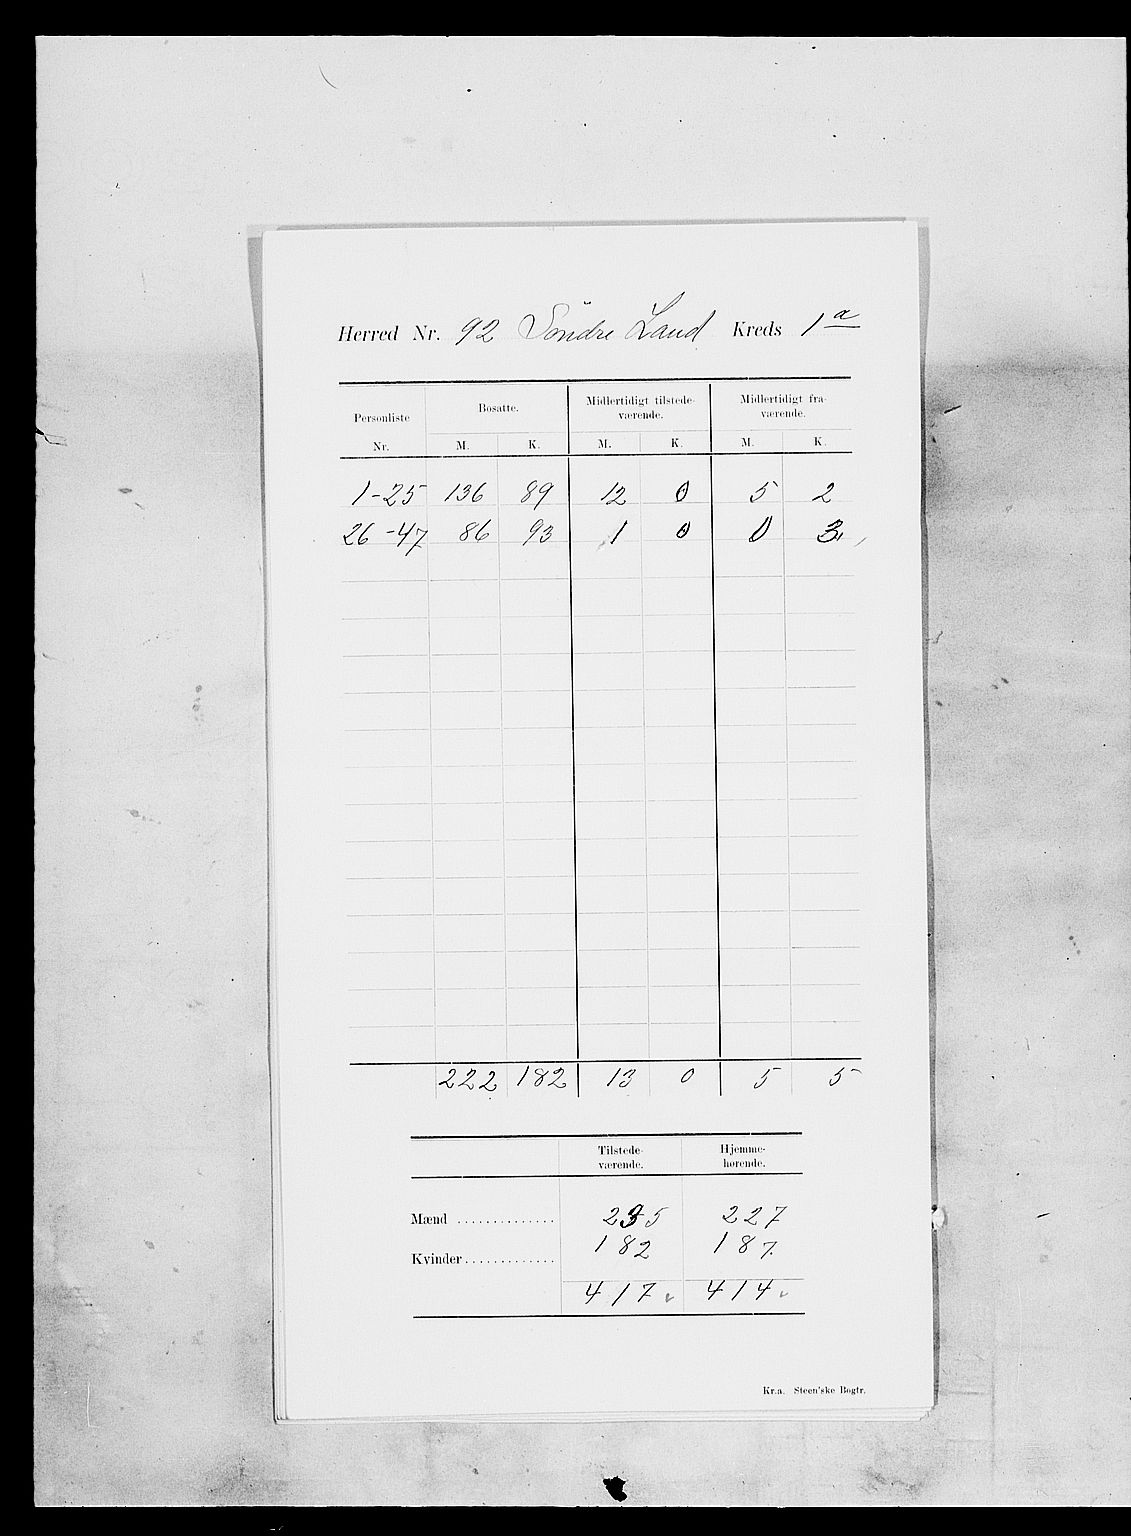 Herred Nr. 92 Söndre Land Kreds 1a
Personliste Nr. Bosatte. Midlertidigt tilstede-værende. Midlertidigt fra-værende.
M. K. M. K. M. K.
1-25 136 89 12 0 5 2
26-47 86 93 1 0 0 3
222 182 13 0 5 5
Tilstede-værende. Hjemme-hørende.
Mænd .............. 235 227
Kvinder ............. 182 187.
417 414
Kr.a. Steen'ske Bogtr.